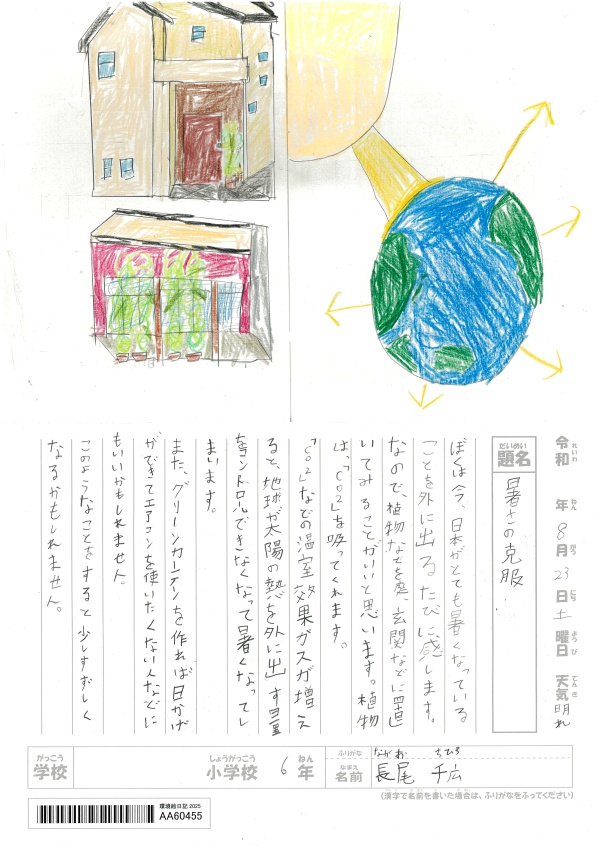 令和 年 8月 23日 土曜日 天気 晴れ
れいわ ねん がつ にち ようび てんき
だいめい
題名
暑さの克服
ぼくは今、日本がとても暑くなっている
ことを外に出るたびに感じます。
なので、植物などを庭、玄関などに置
いてみることがいいと思います。植物
は、「CO2」を吸ってくれます。
「CO2」などの温室効果ガスが増え
ると、地球が太陽の熱を外に出す量
をコントロルできなくなって暑くなってし
まいます。
また、グリーンカーテンを作れば日かげ
ができてエアコンを使いたくない人などに
もいいかもしれません。
このようなことをすると少しすずしく
なるかもしれません。
がっこう
学校
しょうがっこう
小学校
ねん
6年
ふりがな ながお ちひろ
なまえ
名前 長尾 千広
(漢字で名前を書いた場合は、ふりがなをふってください)
環境絵日記 2025
AA60455